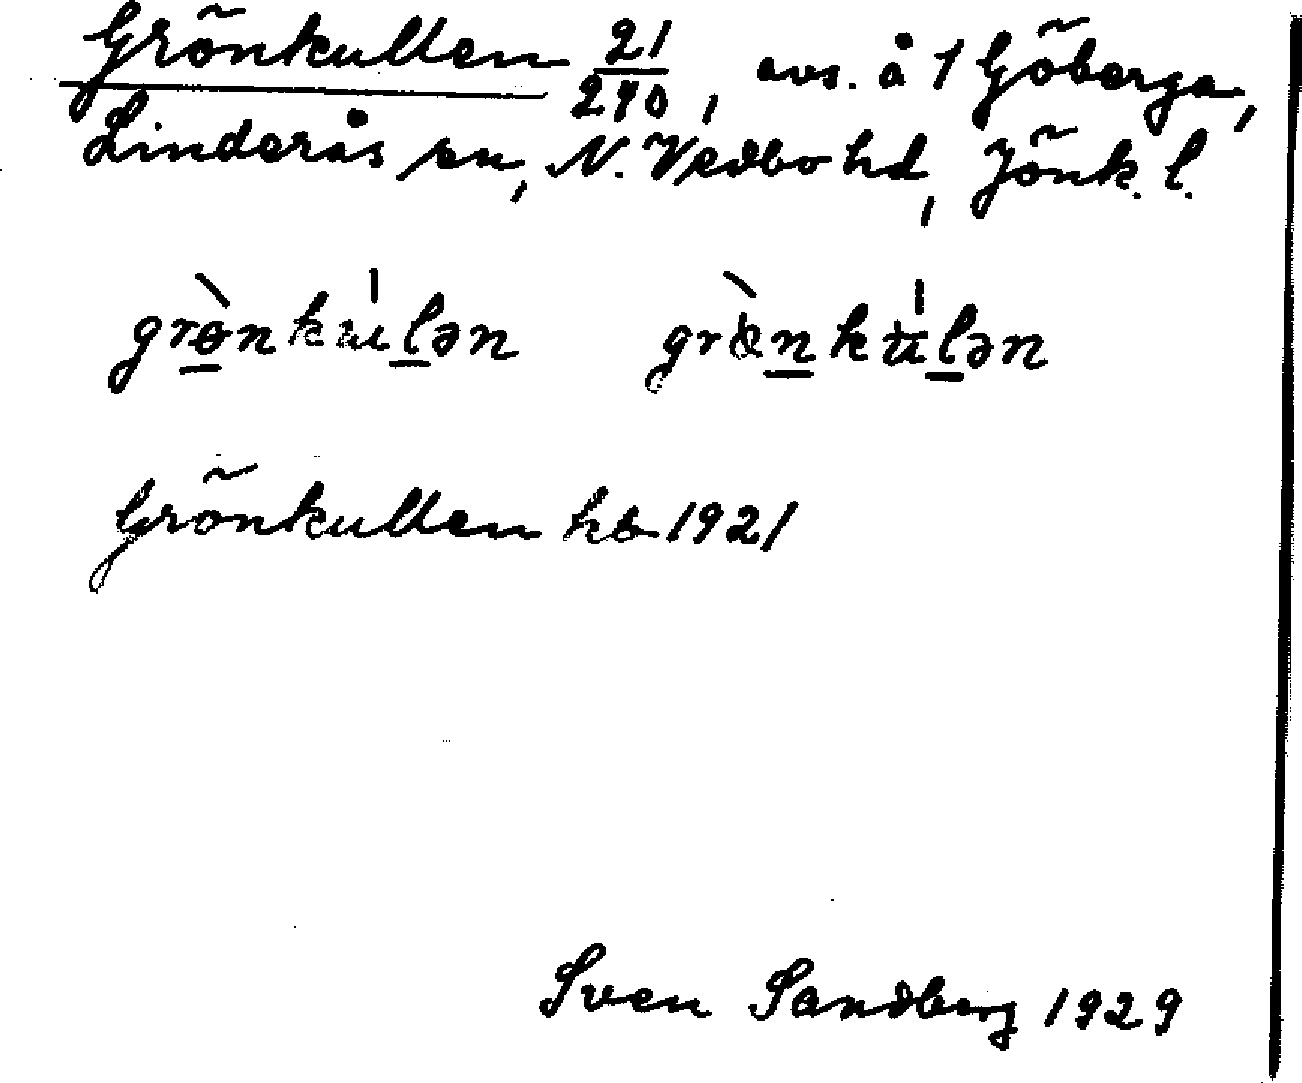 Grönkullen 21/240, avs. å 1 Göberga,
Linderås sn, N. Vedbo hd, Jönk. l.
Grönkullen hb 1921
Sven Sandberg 1929